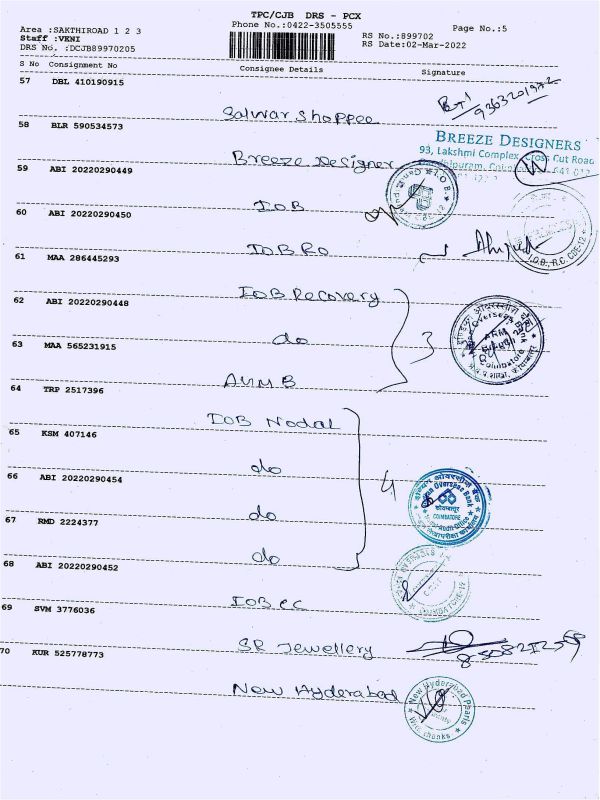 TPC/CJB DRS - PCX
Area :SAKTHIROAD 1 2 3
Phone No.:0422-3505555
Page No.:5
Staff :VENI
RS No.:899702
DRS No. :DCJB89970205
RS Date:02-Mar-2022
S No Consignment No Consignee Details Signature
57 DBL 410190915
Salwar Shoppee
58 BLR 590534573
BREEZE DESIGNERS
93, Lakshmi Complex, Cross Cut Road
Breeze Designer
59 ABI 20220290449
IOB
60 ABI 20220290450
IOB RO
I.O.B., R.C. CBE-12
61 MAA 286445293
IOB Recovery
62 ABI 20220290448
do
3
63 MAA 565231915
ARMB
64 TRP 2517396
IOB Nodal
65 KSM 407146
do
66 ABI 20220290454
4
do
67 RMD 2224377
do
68 ABI 20220290452
IOB CC
69 SVM 3776036
SR Jewellery
70 KUR 525778773
New Hyderabad
New Hyderabad Pearls